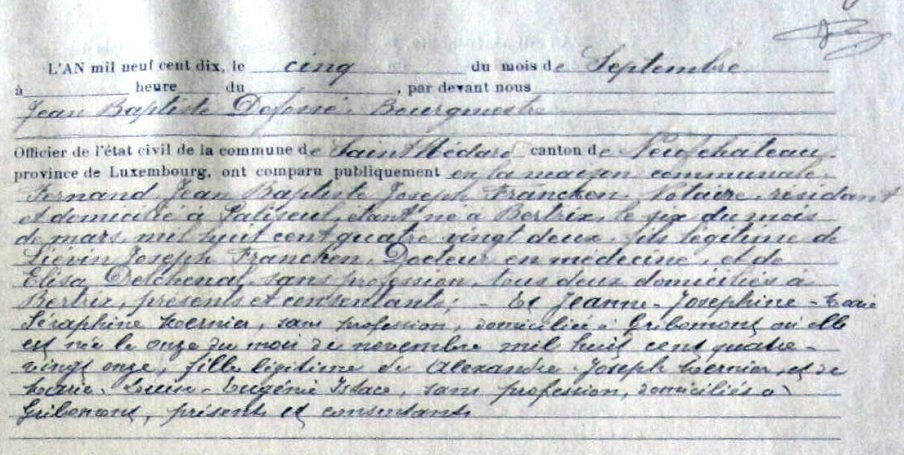 L'AN mil neuf cent dix, le cinq du mois de Septembre
à heure du , par devant nous
Jean Baptiste Bourgmestre
Officier de l'état civil de la commune de Saint Médard canton de Neufchateau
province de Luxembourg, ont comparu publiquement en la maison communale.
Fernand Jean Baptiste Joseph Francken, Notaire, résidant
et domicilié à Paliseul, étant né à Bertrix, le six du mois
de mars mil huit cent quatre vingt deux, fils légitime de
Liévin Joseph Francken, Docteur en médecine, et de
Elisa Delchenal, sans profession, tous deux domiciliés à
Bertrix, présents et consentants; - Et Jeanne - Josephine - Marie
Séraphine, sans profession, domiciliée à Gribomont où elle
est née le onze du mois de novembre mil huit cent quatre -
vingt onze, fille légitime de Alexandre - Joseph, et de
Marie - Louise - Eugénie Istace, sans profession, domiciliés à
Gribomont, présents et consentants